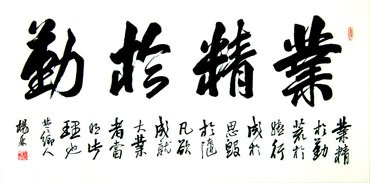 業精於勤
業精
於勤
荒於
嬉行
成於
思毀
於隨
凡欲
成就
大業
者當
明此
理也
鄉人
楊